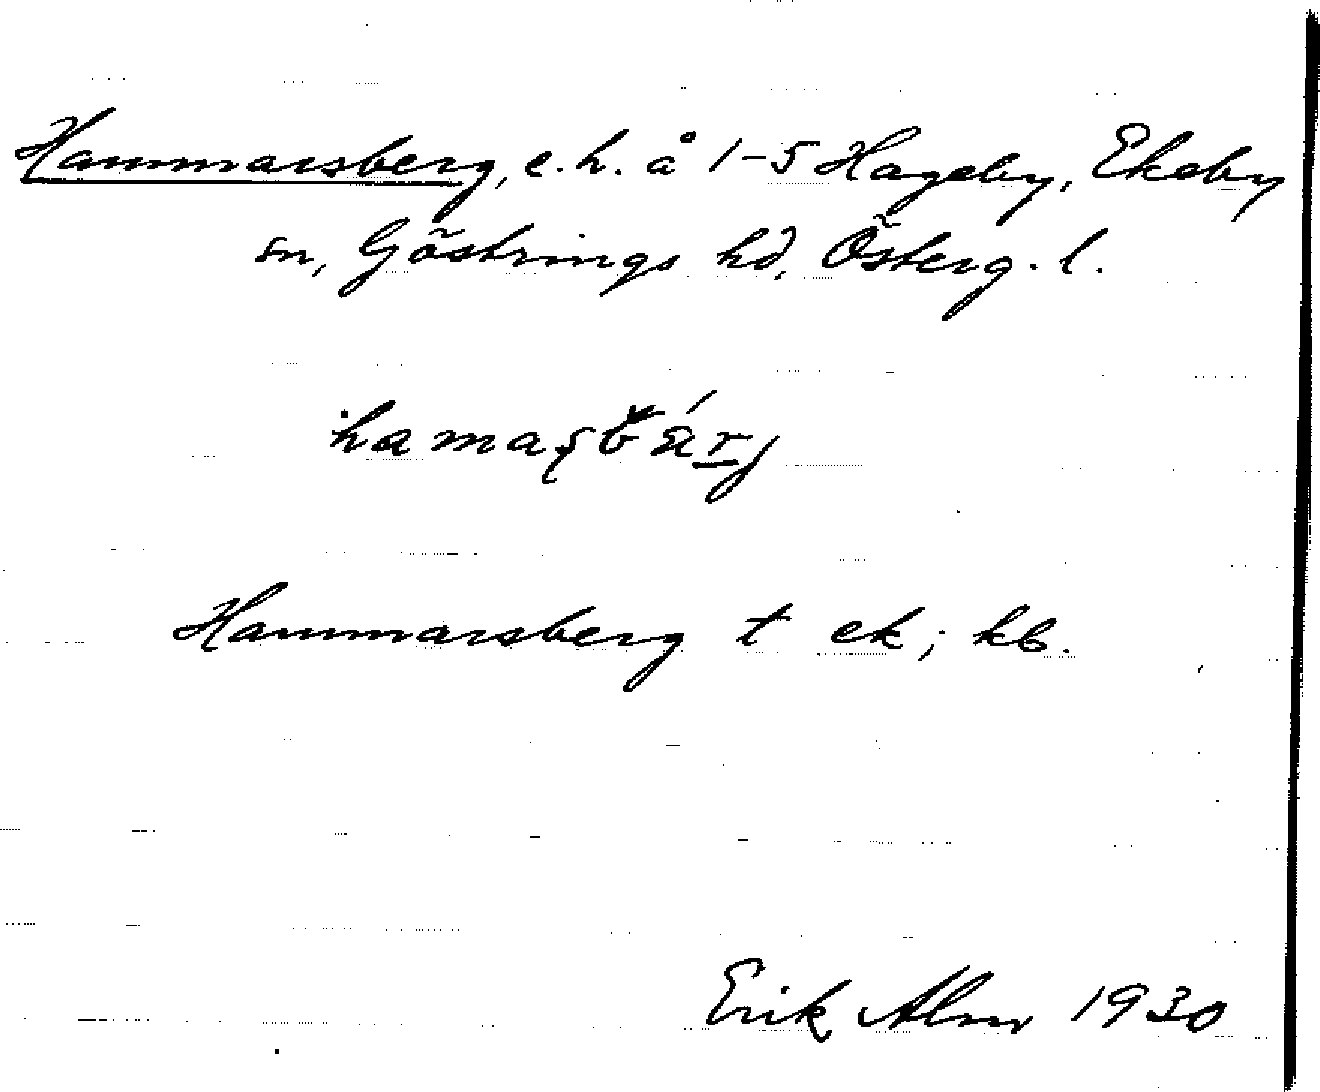 Hammarsberg, e. h. å 1-5 Hageby, Ekeby
sn, Göstrings hd, Österg. l.
Hammarsberg t ek; kb.
Erik Alm 1930